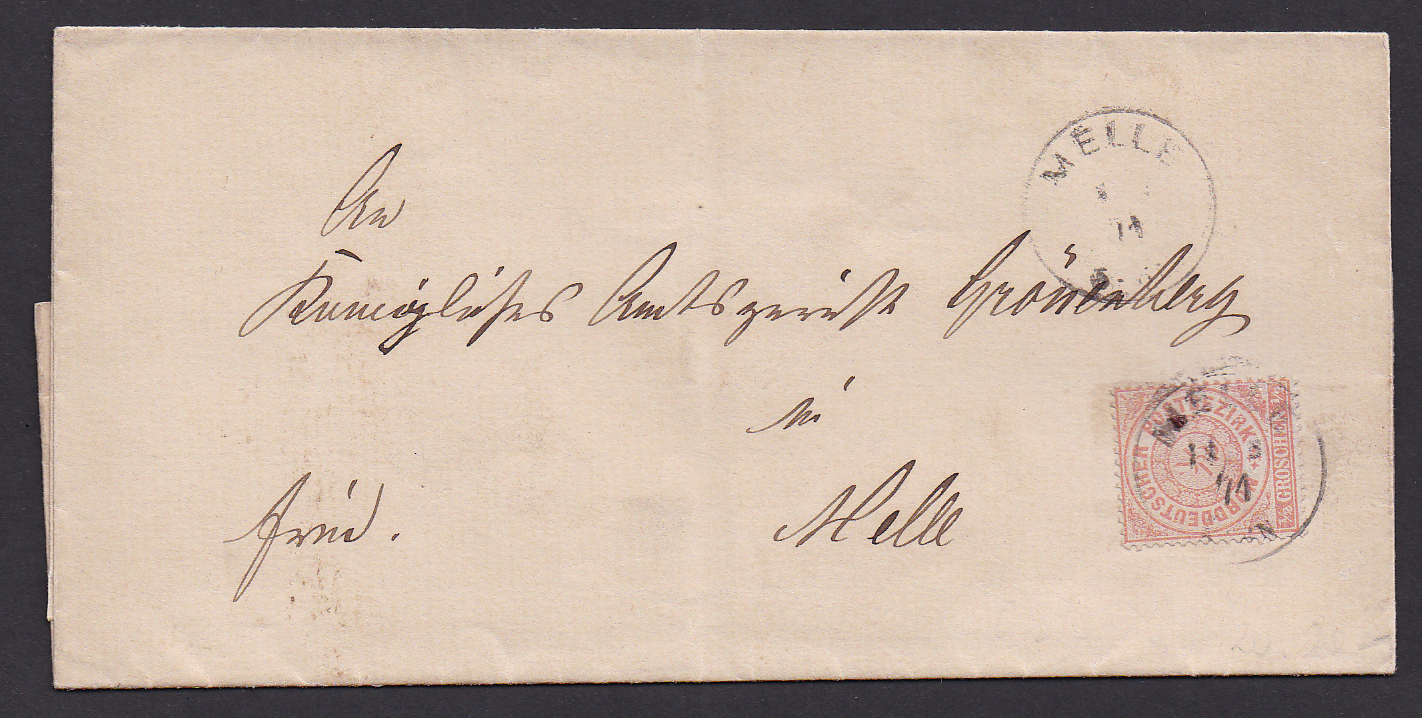 MELLE
71
An
Königliches Amtsgericht Grönenberg
in
Melle
frei.
NORDDEUTSCHER POSTBEZIRK
GROSCHEN
MELLE
11 71
N